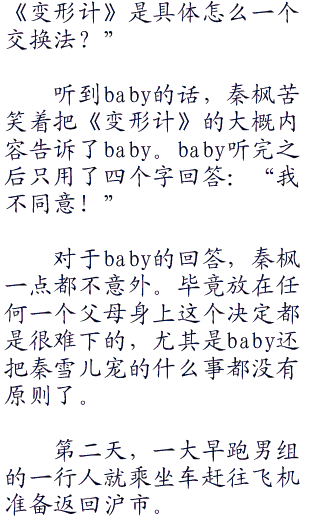 《变形计》是具体怎么一个
交换法？”
听到baby的话，秦枫苦
笑着把《变形计》的大概内
容告诉了baby。baby听完之
后只用了四个字回答：“我
不同意！”
对于baby的回答，秦枫
一点都不意外。毕竟放在任
何一个父母身上这个决定都
是很难下的，尤其是baby还
把秦雪儿宠的什么事都没有
原则了。
第二天，一大早跑男组
的一行人就乘坐车赶往飞机
准备返回沪市。